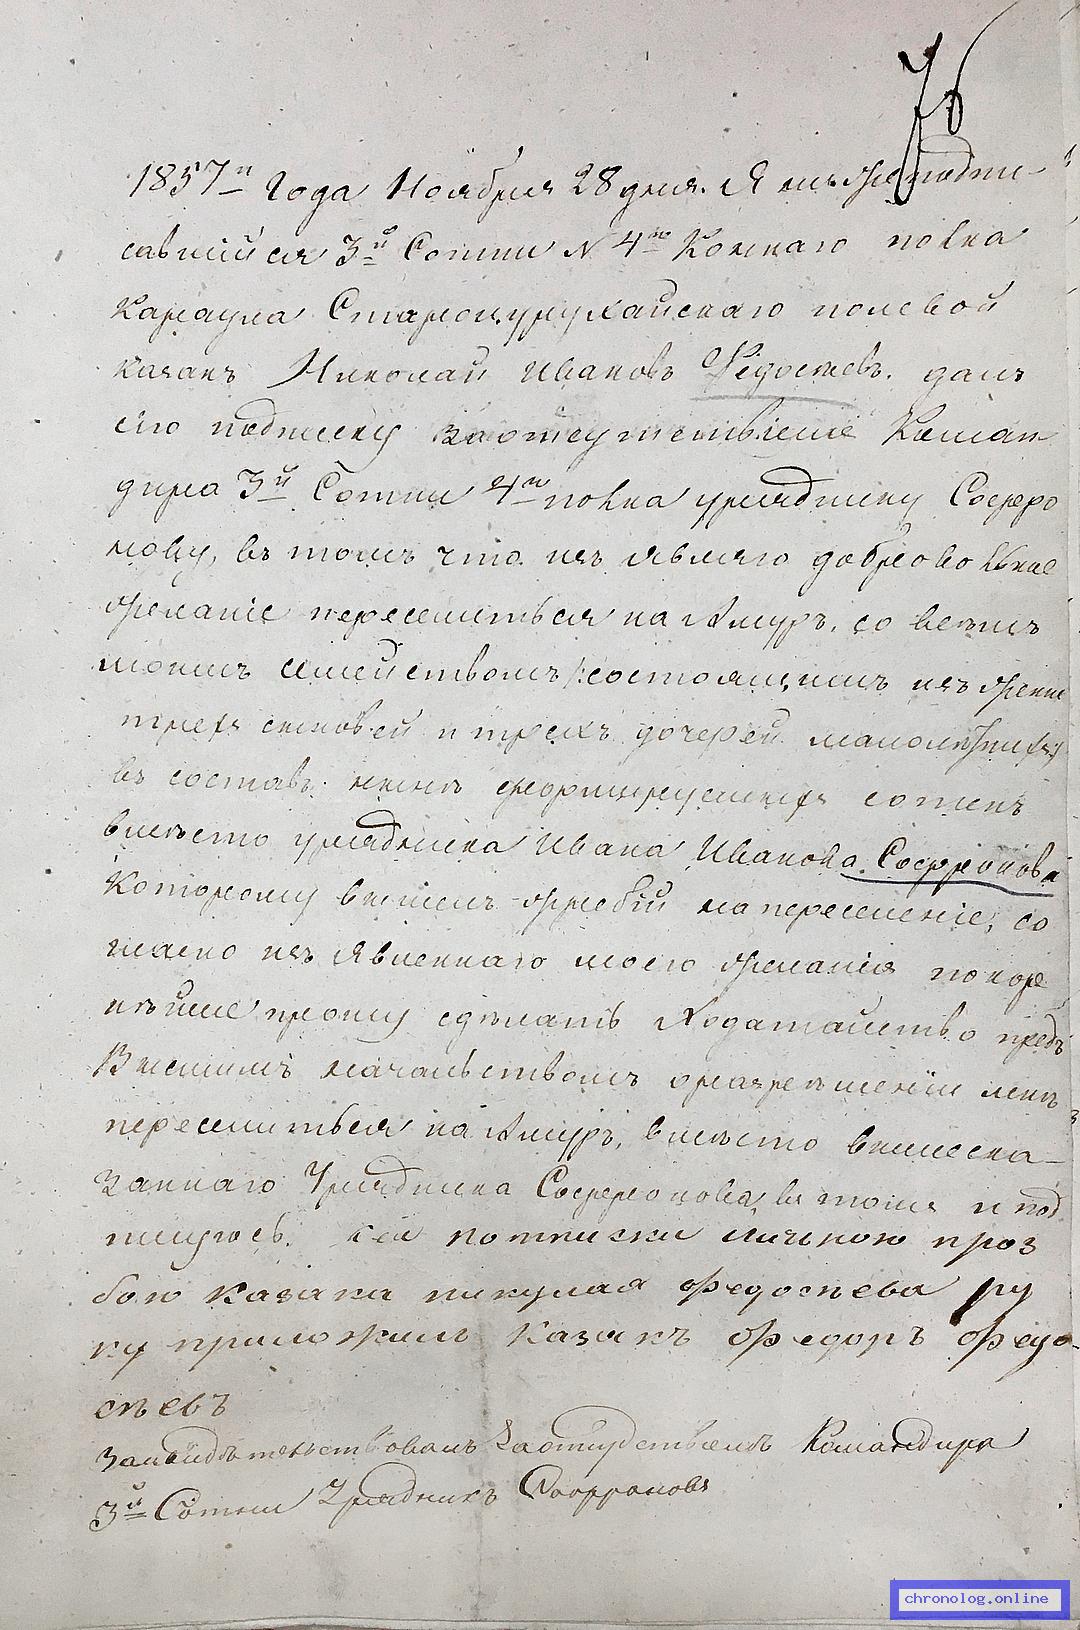 76
1857го Года Ноября 28 дня. Я нижеподпи-
савшійся 3й Сотни N 4го Коннаго полка
Караула Староцурухайскаго полевой
казакъ Николай Ивановъ Федосѣевъ. далъ
сію подписку заотсутствіемъ Коман
дира 3й Сотни 4го полка уряднику Софро
нову, въ томъ что изъявляю доброволное
желаніе переселиться на Амуръ, со всѣмъ
моимъ семействомъ /:состоящимъ изъ жены
трехъ сыновей и трехъ дочерей малолѣтнихъ/
въ составъ нынѣ формируемыхъ сотенъ
вмѣсто урядника Ивана Иванова Софронова
Которому выпалъ жребій на переселеніе, со
гласно изъявленнаго моего желанія покор
нѣйше прошу сдѣлать Ходатайство предъ
Высшимъ начальствомъ о разрѣшеніи мнѣ
переселиться на Амуръ, вмѣсто вышеска-
заннаго Урядника Софронова, въ томъ и под
писуюсь. К сей потписки личною проз
бою казака николая федосѣева ру
ку приложилъ казакъ федоръ федо-
сѣевъ
Засвидѣтельствовалъ Заотсудствіемъ Командира
3й Сотни Урядникъ Софроновъ
chronolog.online